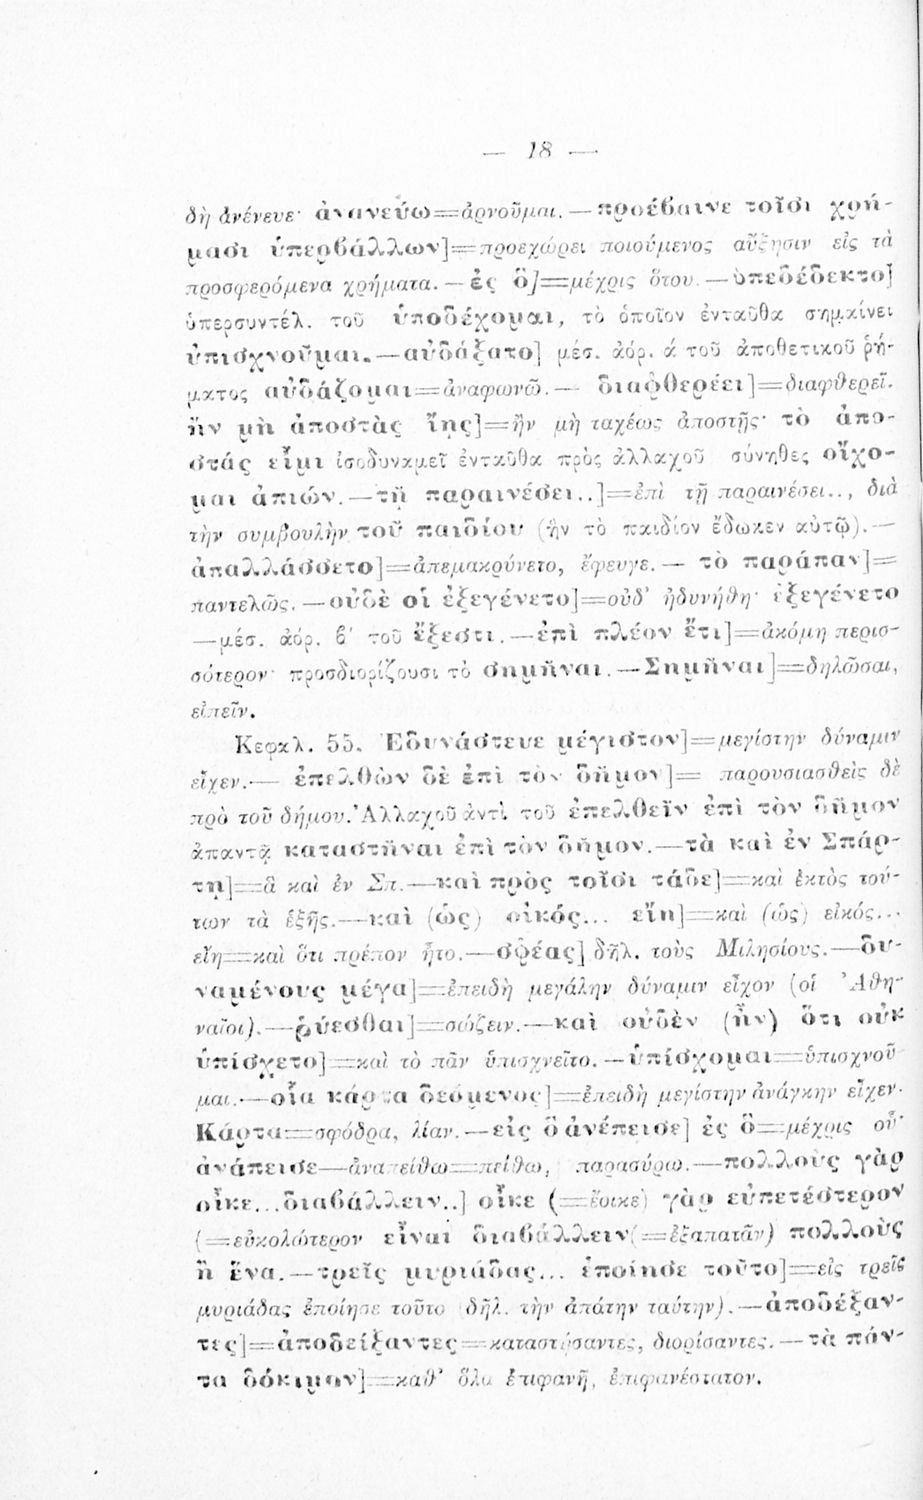 — 18 —
δὴ ἀνένευε· ἀνανεύω=ἀρνοῦμαι. — προέβαινε τοῖσι χρή-
μασι ὑπερβάλλων]=προεχώρει ποιούμενος αὔξησιν εἰς τὰ
προσφερόμενα χρήματα. — ἐς ὃ]=μέχρις ὅτου. — ὑπεδέδεκτο]
ὑπερσυντέλ. τοῦ ὑποδέχομαι, τὸ ὁποῖον ἐνταῦθα σημαίνει
ὑπισχνοῦμαι. — αὐδάξατο] μέσ. ἀόρ. ά τοῦ ἀποθετικοῦ ῥή-
ματος αὐδάζομαι=ἀναφωνῶ. — διαφθερέει]=διαφθερεῖ.
ἢν μὴ ἀποστὰς ἴῃς]=ἢν μὴ ταχέως ἀποστῇς· τὸ ἀπο-
στάς εἶμι ἰσοδυναμεῖ ἐνταῦθα πρὸς ἀλλαχοῦ σύνηθες οἴχο-
μαι ἀπιών. — τῇ παραινέσει..]=ἐπὶ τῇ παραινέσει.., διὰ
τὴν συμβουλὴν τοῦ παιδίου (ἣν τὸ παιδίον ἔδωκεν αὐτῷ). —
ἀπαλλάσσετο]=ἀπεμακρύνετο, ἔφευγε. — τὸ παράπαν]=
παντελῶς. — οὐδὲ οἱ ἐξεγένετο]=οὐδ' ἠδυνήθη· ἐξεγένετο
— μέσ. ἀόρ. β' τοῦ ἔξεστι. — ἐπὶ πλέον ἔτι]=ἀκόμη περισ-
σότερον· προσδιορίζουσι τὸ σημῆναι. — Σημῆναι]=δηλῶσαι,
εἰπεῖν.
Κεφαλ. 55. Ἐδυνάστευε μέγιστον]=μεγίστην δύναμιν
εἶχεν. — ἐπελθὼν δὲ ἐπὶ τὸν δῆμον]= παρουσιασθεὶς δὲ
πρὸ τοῦ δήμου. Ἀλλαχοῦ ἀντὶ τοῦ ἐπελθεῖν ἐπὶ τὸν δῆμον
ἀπαντᾷ καταστῆναι ἐπὶ τὸν δῆμον. — τὰ καὶ ἐν Σπάρ-
τῃ]=ἃ καὶ ἐν Σπ. — καὶ πρὸς τοῖσι τάδε]=καὶ ἐκτὸς τού-
των τὰ ἑξῆς. — καὶ (ὡς) οἰκός... εἴη]=καὶ (ὡς) εἰκός...
εἴη=καὶ ὅτι πρέπον ἦτο. — σφέας] δῆλ. τοὺς Μιλησίους. — δυ-
ναμένους μέγα]=ἐπειδὴ μεγάλην δύναμιν εἶχον (οἱ Ἀθη-
ναῖοι). — ῥύεσθαι]=σώζειν. — καὶ οὐδὲν (ἦν) ὅτι οὐκ
ὑπίσχετο]=καὶ τὸ πᾶν ὑπισχνεῖτο. — ὑπίσχομαι=ὑπισχνοῦ
μαι. — οἷα κάρτα δεόμενος]=ἐπειδὴ μεγίστην ἀνάγκην εἶχεν.
Κάρτα=σφόδρα, λίαν. — εἰς ὃ ἀνέπεισε] ἐς ὃ=μέχρις οὗ·
ἀνάπεισε — ἀναπείθω=πείθω, παρασύρω. — πολλοὺς γὰρ
οἶκε...διαβάλλειν..] οἶκε (=ἔοικε) γὰρ εὐπετέστερον
(=εὐκολώτερον εἶναι διαβάλλειν (=ἐξαπατᾶν) πολλοὺς
ἢ ἕνα. — τρεῖς μυριάδας... ἐποίησε τοῦτο]=εἰς τρεῖς
μυριάδας ἐποίησε τοῦτο (δῆλ. τὴν ἀπάτην ταύτην). — ἀποδέξαν-
τες]=ἀποδείξαντες=καταστήσαντες, διορίσαντες. — τὰ πάν-
τα δόκιμον]=καθ' ὅλα ἐπιφανῆ, ἐπιφανέστατον.